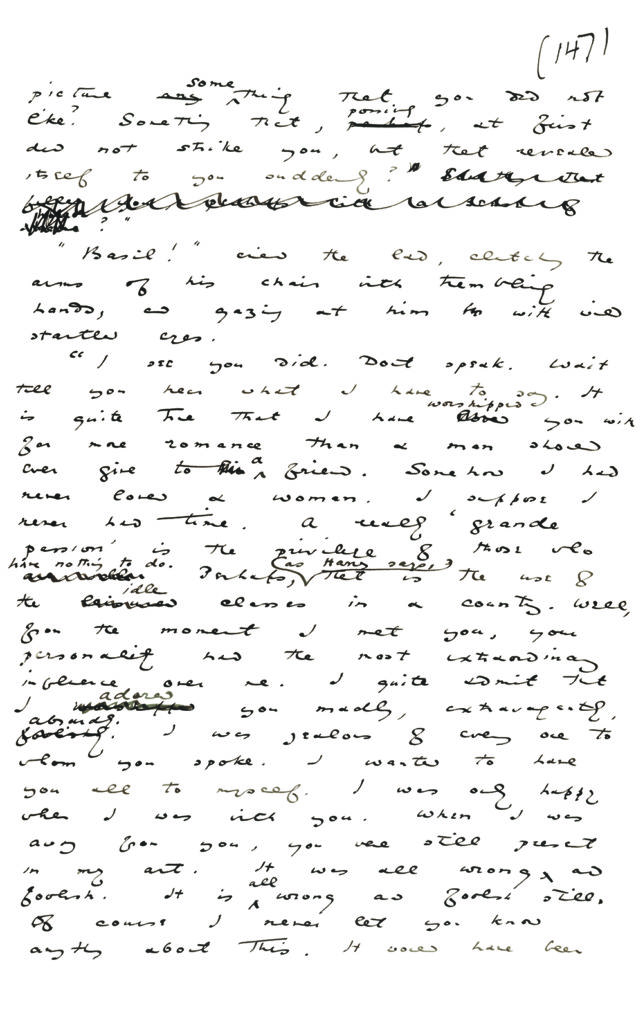 (147)
picture any some thing that you did not
like? Something that, perhaps, possibly, at first
did not strike you, but that revealed
itself to you suddenly?"
?"
"Basil!" cried the lad, clutching the
arms of his chair with trembling
hands, and gazing at him with wild
startled eyes.
"I see you did. Don't speak. Wait
till you hear what I have to say. It
is quite true that I have worshipped you with
far more romance than a man should
ever give to a friend. Somehow I had
never loved a woman. I suppose I
never had time. A really 'grande
passion' is the privilege of those who
have nothing to do. Perhaps, (as Harry says,) that is the use of
the leisured idle classes in a country. Well,
from the moment I met you, your
personality had the most extraordinary
influence over me. I quite admit that
I adored you madly, extravagantly,
absurdly. foolishly. I was jealous of every one to
whom you spoke. I wanted to have
you all to myself. I was only happy
when I was with you. When I was
away from you, you were still present
in my art. It was all wrong and
foolish. It is all wrong and foolish still.
Of course I never let you know
anything about this. It would have been